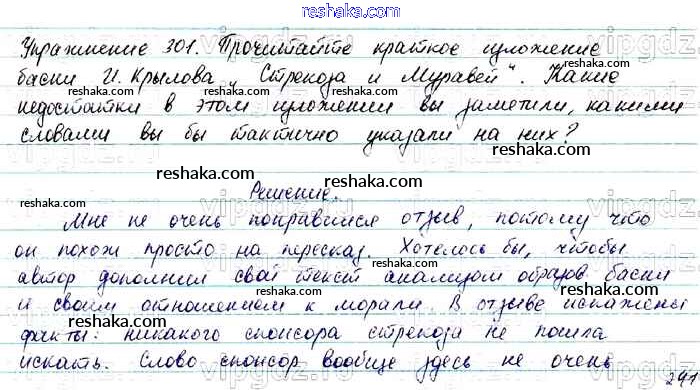 reshaka.com
Упражнение 301. Прочитайте краткое изложение
басни И. Крылова „Стрекоза и Муравей“. Какие
недостатки в этом изложении вы заметили, какими
словами вы бы тактично указали на них?
reshaka.com
Решение.
Мне не очень понравился отзыв, потому что
он похож просто на пересказ. Хотелось бы, чтобы
автор дополнил свой текст анализом образов басни
и своим отношением к морали. В отзыве искажены
факты: никакого спонсора стрекоза не пошла
искать. Слово спонсор вообще здесь не очень
241